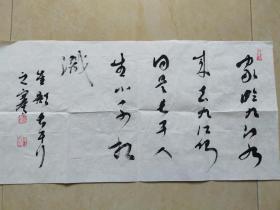 家临九江水
来去九江侧
同是长干人
生小不相
识
崔颢长干行
之寒